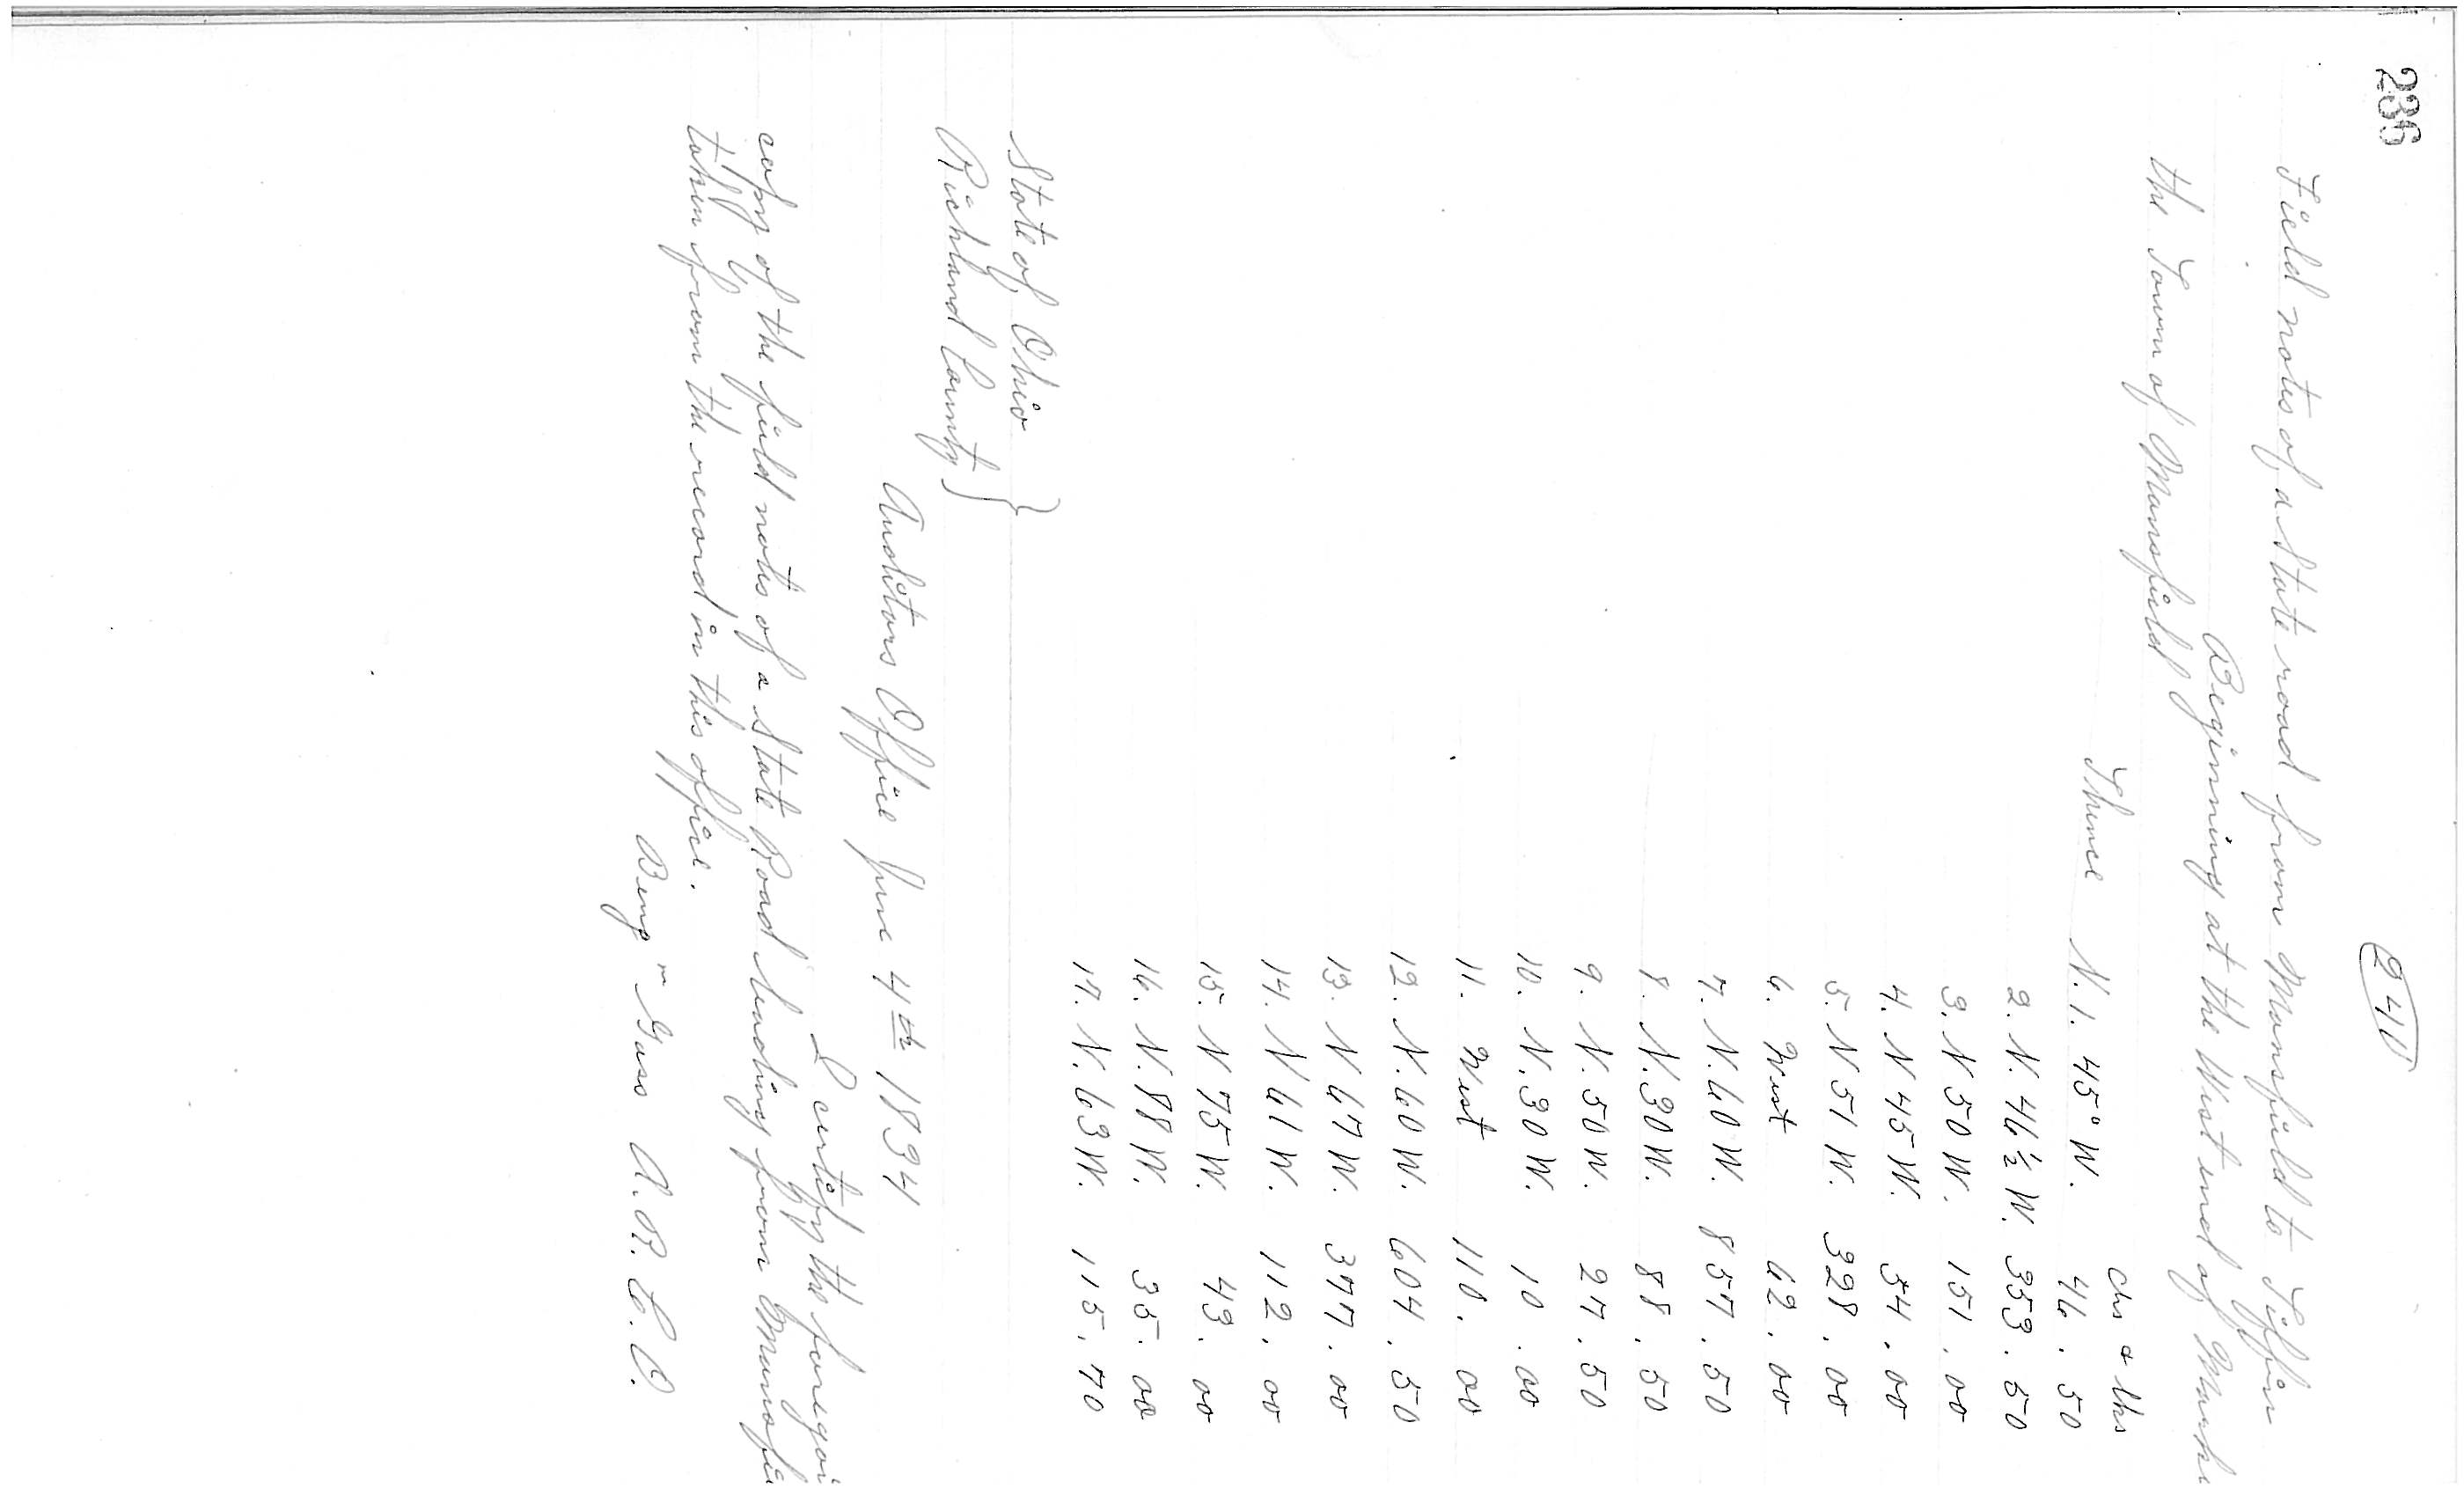 236
240
Field notes of a State road from Mansfield to Tiffin
Beginning at the West end of
the Town of Mansfield
chs & lks
Thence N. 1. 45° W. 46.50
2. N. 46½ W. 353.50
3. N 50 W. 151.00
4. N 45 W. 54.00
5. N 51 W. 328.00
6. West 62.00
7. N. 60 W. 857.50
8. N. 30 W. 88.50
9. N. 50 W. 27.50
10. N. 30 W. 10.00
11. West 110.00
12. N. 60 W. 604.50
13. N 67 W. 377.00
14. N 61 W. 112.00
15. N 75 W. 43.00
16. N. 88 W. 35.00
17. N. 63 W. 115.70
State of Ohio }
Richland County }
Auditors Office June 4th 1834
I certify the foregoi
copy of the field notes of a State Road leading from Mansfie
taken from the record in this office.
Gass A.R.C.O.